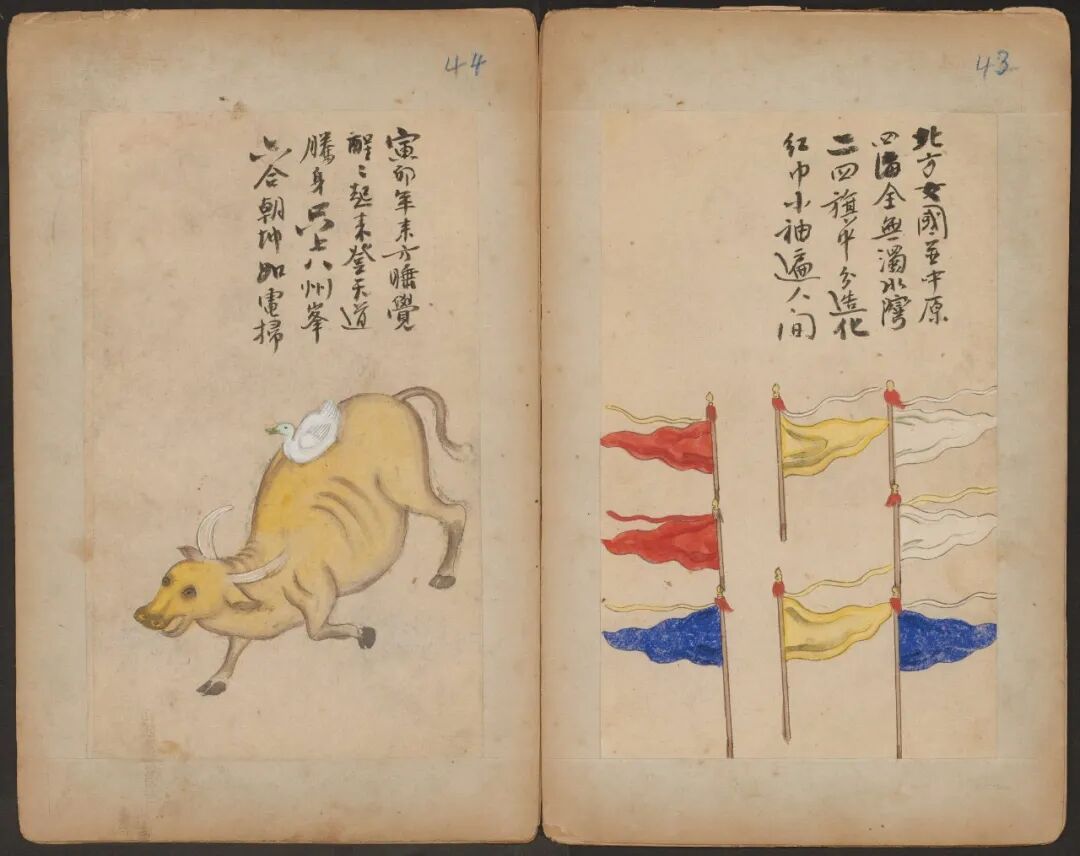 43
北方女國中原
四海全無濁水灣
二四旗平分造化
紅巾小袖遍人间
44
寅卯年来方睡覺
醒〻起来登天道
騰身只上八州峯
六合朝坤如電掃